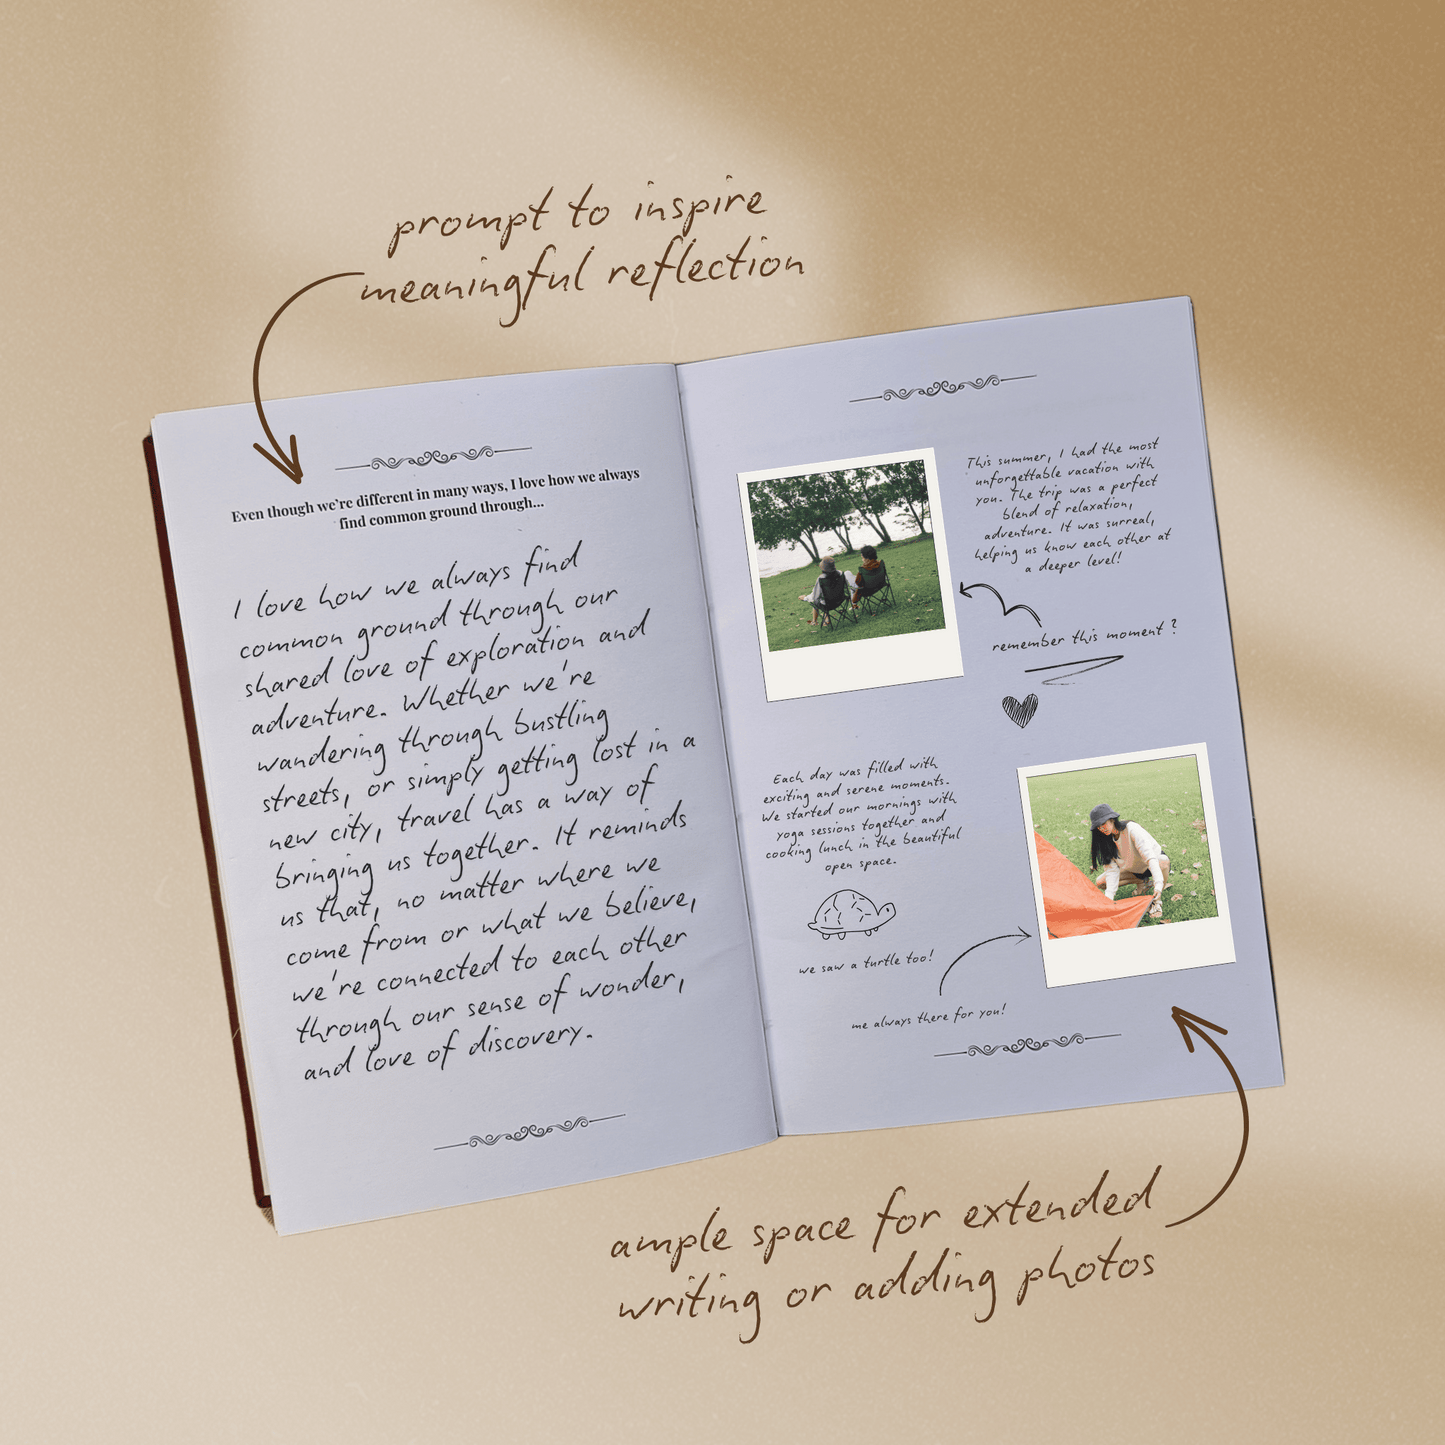 prompt to inspire
meaningful reflection
Even though we're different in many ways, I love how we always
find common ground through...
I love how we always find
common ground through our
shared love of exploration and
adventure. Whether we're
wandering through bustling
streets, or simply getting lost in a
new city, travel has a way of
bringing us together. It reminds
us that, no matter where we
come from or what we believe,
we're connected to each other
through our sense of wonder,
and love of discovery.
This summer, I had the most
unforgettable vacation with
you. The trip was a perfect
blend of relaxation,
adventure. It was surreal,
helping us know each other at
a deeper level!
remember this moment ?
Each day was filled with
exciting and serene moments.
We started our mornings with
yoga sessions together and
cooking lunch in the beautiful
open space.
we saw a turtle too!
me always there for you!
ample space for extended
writing or adding photos